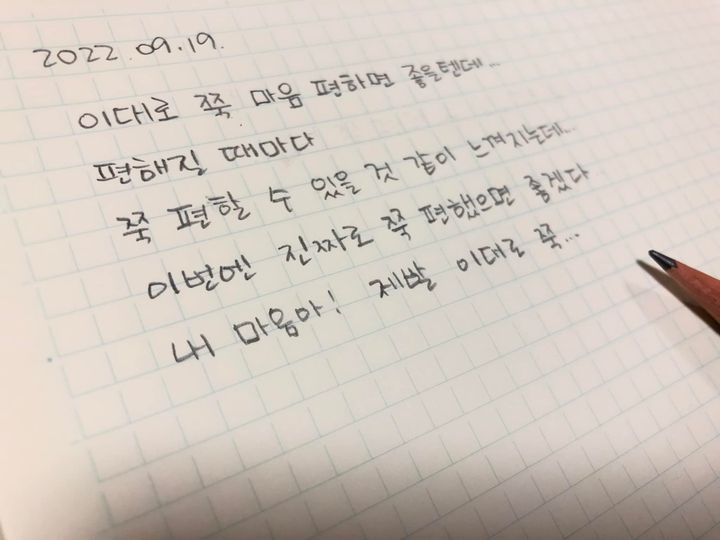 2022.09.19.
이대로 쭉 마음 편하면 좋을텐데...
편해질 때마다
쭉 편할 수 있을 것 같이 느껴지는데...
이번엔 진짜로 쭉 편했으면 좋겠다
내 마음아! 제발 이대로 쭉...